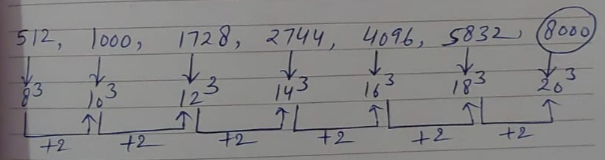 512, 1000, 1728, 2744, 4096, 5832, 8000
8³ 10³ 12³ 14³ 16³ 18³ 20³
+2 +2 +2 +2 +2 +2